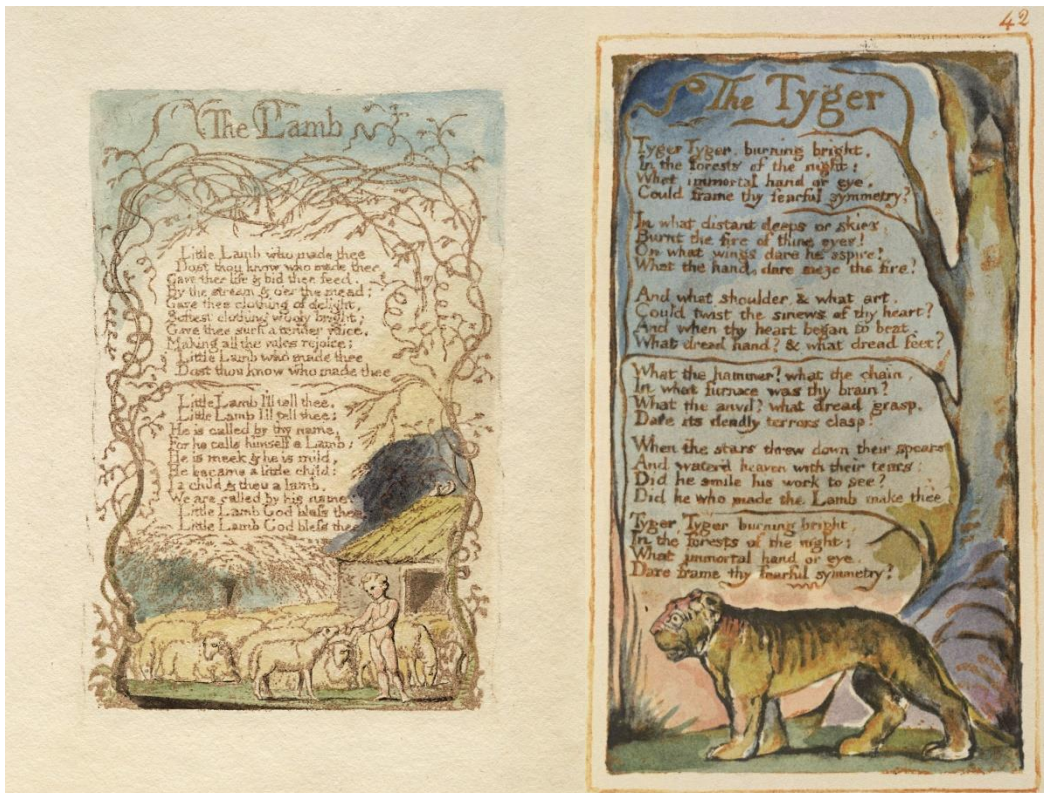 The Lamb
Little Lamb who made thee
Dost thou know who made thee
Gave thee life & bid thee feed.
By the stream & o'er the mead;
Gave thee clothing of delight,
Softest clothing wooly bright;
Gave thee such a tender voice,
Making all the vales rejoice;
Little Lamb who made thee
Dost thou know who made thee
Little Lamb I'll tell thee,
Little Lamb I'll tell thee;
He is called by thy name,
For he calls himself a Lamb;
He is meek & he is mild,
He became a little child;
I a child & thou a lamb,
We are called by his name.
Little Lamb God bless thee.
Little Lamb God bless thee
42
The Tyger
Tyger Tyger, burning bright,
In the forests of the night;
What immortal hand or eye,
Could frame thy fearful symmetry?
In what distant deeps or skies,
Burnt the fire of thine eyes!
On what wings dare he aspire!
What the hand, dare sieze the fire?
And what shoulder, & what art,
Could twist the sinews of thy heart?
And when thy heart began to beat,
What dread hand? & what dread feet?
What the hammer? what the chain,
In what furnace was thy brain?
What the anvil? what dread grasp,
Dare its deadly terrors clasp!
When the stars threw down their spears
And water'd heaven with their tears:
Did he smile his work to see?
Did he who made the Lamb make thee
Tyger Tyger burning bright,
In the forests of the night;
What immortal hand or eye,
Dare frame thy fearful symmetry?